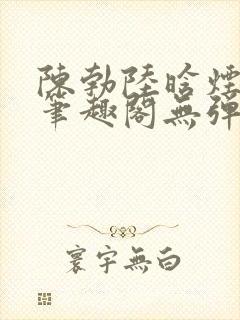 陳勃陸晗煙
筆趣閣無彈
寰宇無白